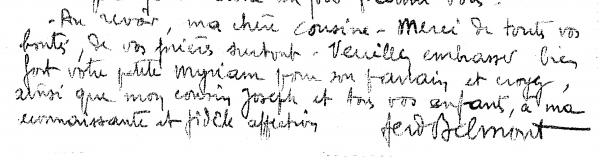 - Au revoir, ma chère cousine - Merci de toutes vos
bontés, de vos prières surtout - Veuillez embrasser bien
fort votre petite Myriam pour son parrain et croyez,
ainsi que mon cousin Joseph et tous vos enfants, à ma
reconnaissante et fidèle affection
Ferd Belmont